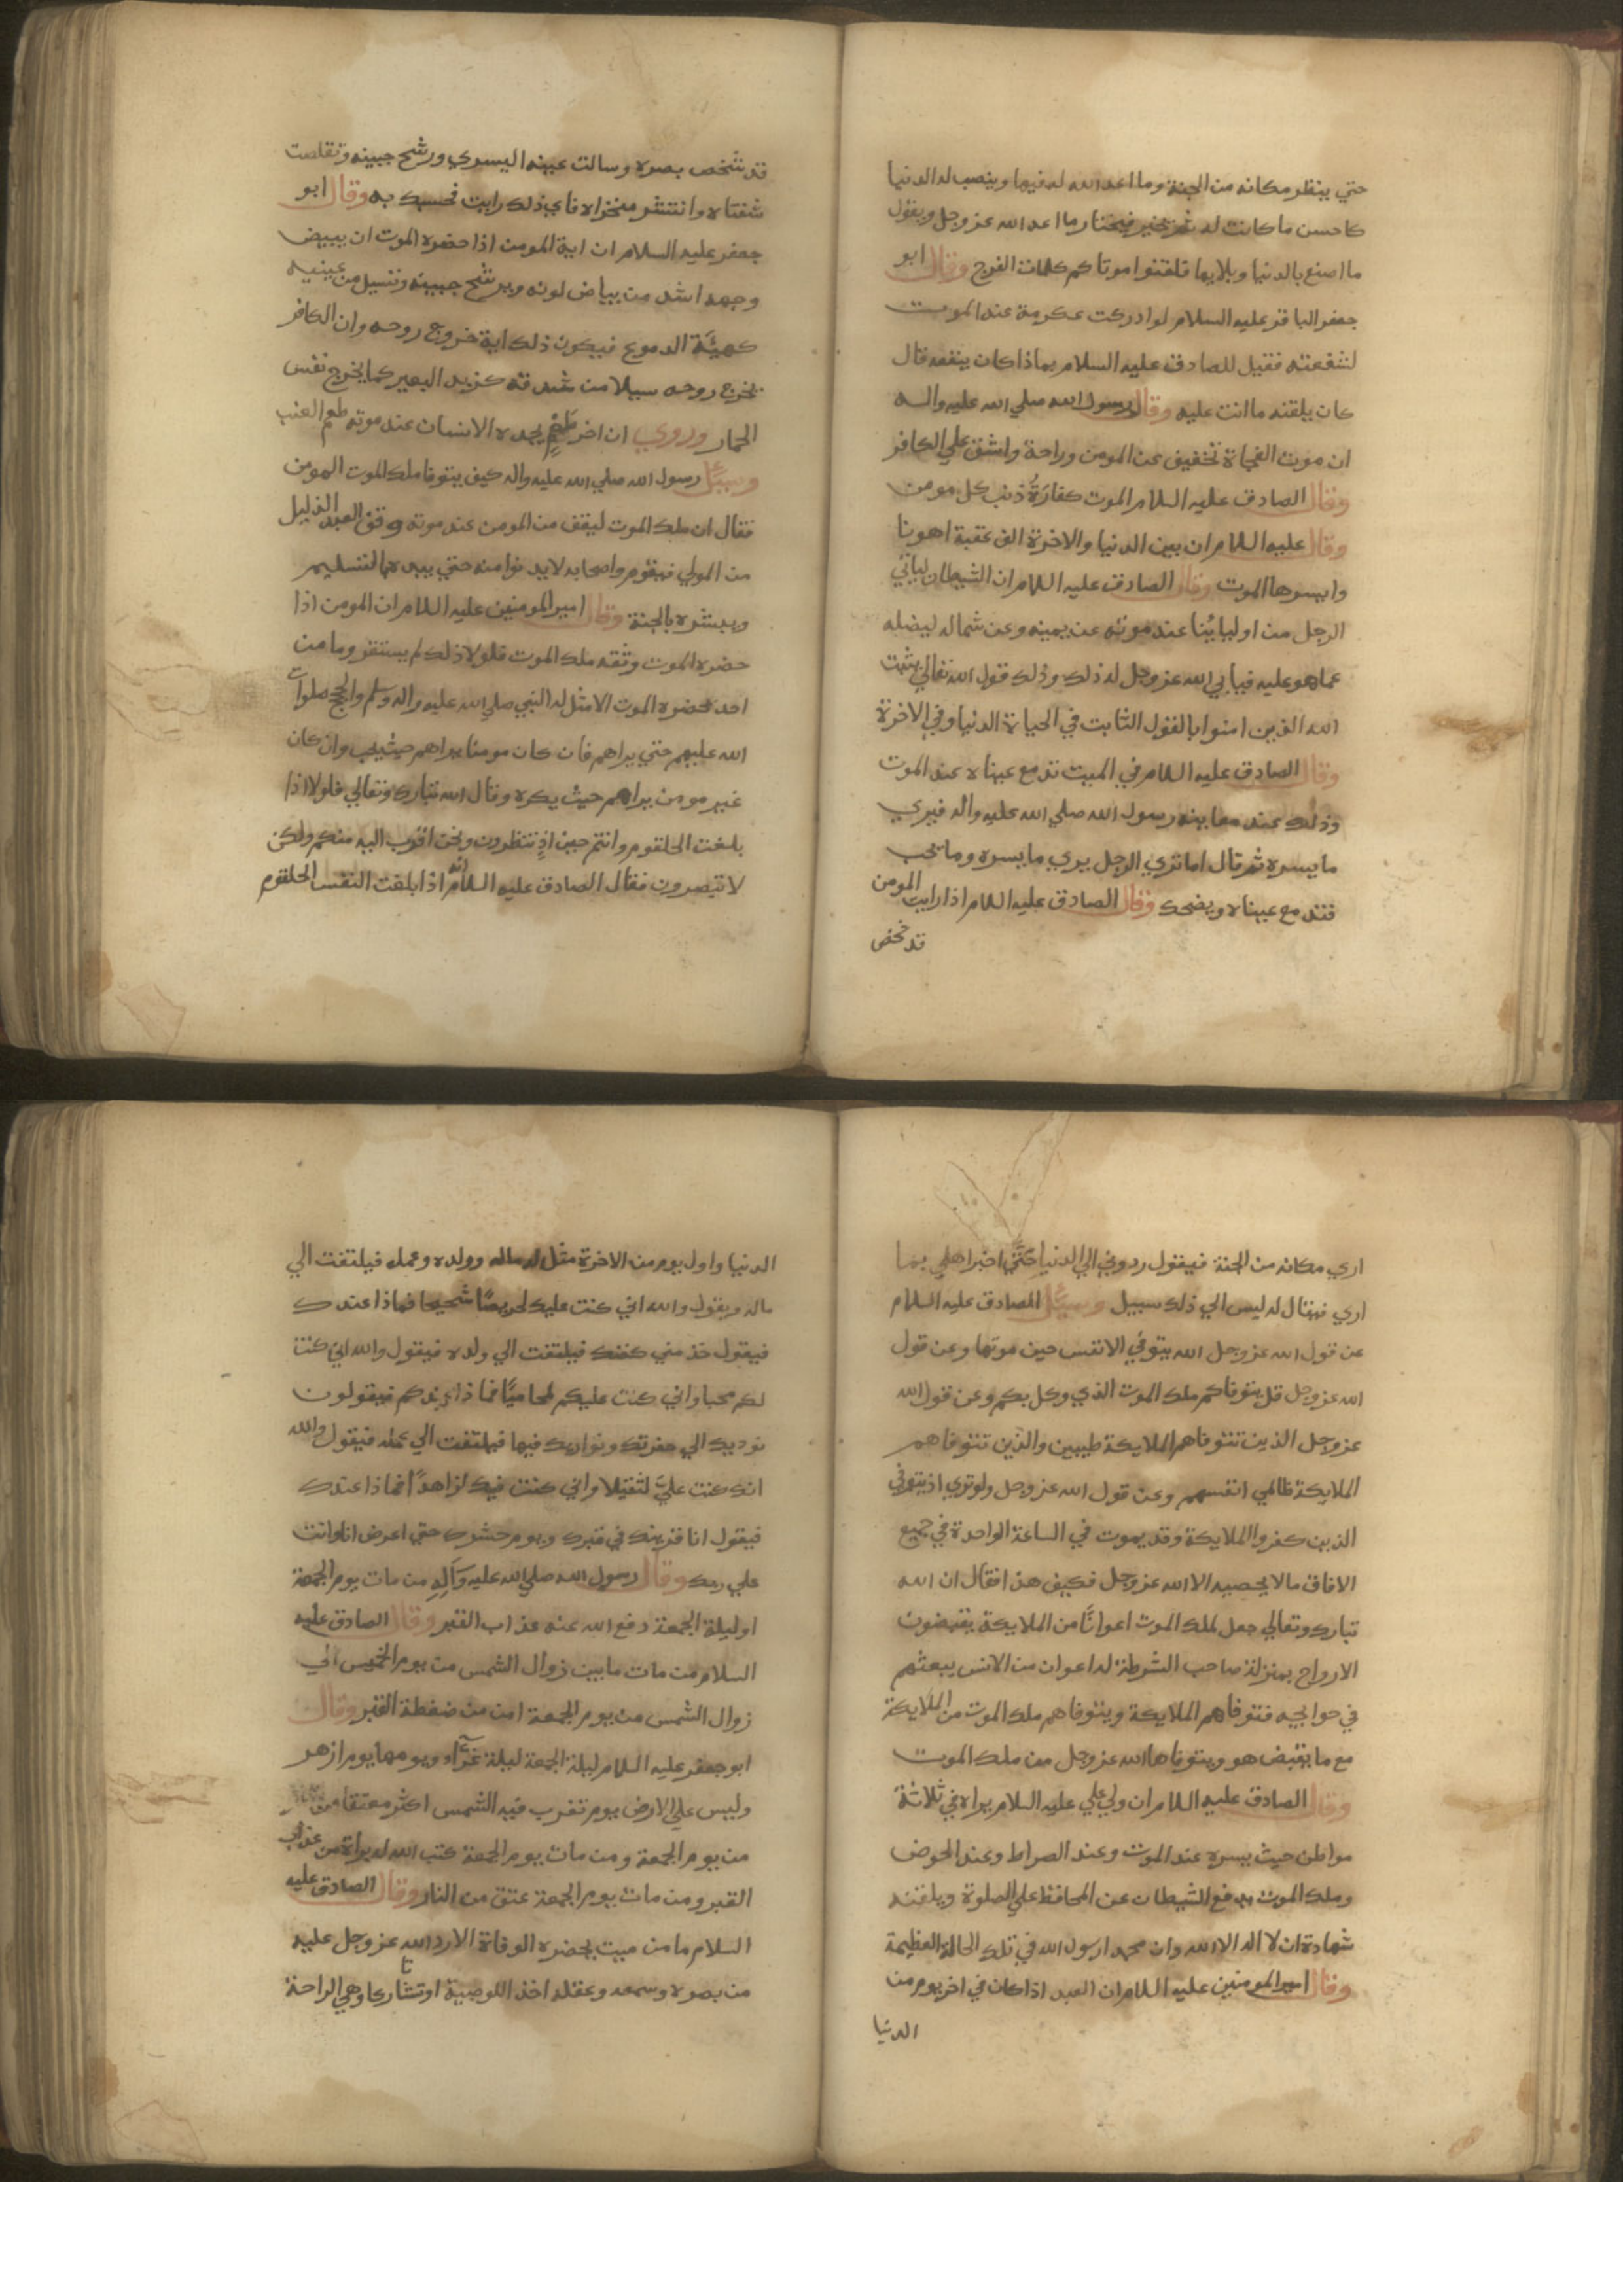 حتي ينظر مكانه من الجنة وما اعد الله له فيها وينصب له الدنيا
كاحسن ما كانت له ثم يخير فيختار ما اعد الله عز وجل ويقول
ما اصنع بالدنيا وبلايها فلقنوا موتاكم كلمات الفرج وقال ابو
جعفر الباقر عليه السلام لو ادركت عكرمة عند الموت
لنفعته فقيل للصادق عليه السلام بماذا كان ينفعه قال
كان يلقنه ما انت عليه وقال رسول الله صلي الله عليه واله
ان موت الفجاة تخفيف عن المومن وراحة واشق علي الكافر
وقال الصادق عليه السلام الموت كفارة ذنب كل مومن
وقال عليه السلام ان بين الدنيا والاخرة الف عقبة اهونا
وايسرها الموت وقال الصادق عليه السلام ان الشيطان لياتي
الرجل من اوليائنا عند موته عن يمينه وعن شماله ليضله
عما هو عليه فيابي الله عز وجل له ذلك وذلك قول الله تعالي يثبت
الله الذين امنوا بالقول الثابت في الحياة الدنيا وفي الاخرة
وقال الصادق عليه السلام في الميت تدمع عيناه عند الموت
وذلك عند معاينه رسول الله صلي الله عليه واله فيري
ما يسره ثم قال اما تري الرجل يري ما يسره وما يحب
فتدمع عيناه ويضحك وقال الصادق عليه السلام اذا رايت المومن
قد شخص
قد شخص بصره وسالت عينه اليسري ورشح جبينه وتقلصت
شفتاه وانتشر منخراه فاي ذلك رايت فحسبك به وقال ابو
جعفر عليه السلام ان اية المومن اذا حضره الموت ان يبيض
وجهه اشد من بياض لونه ويرشح جبينه وتسيل من عينيه
كهيئة الدموع فيكون ذلك اية خروج روحه وان الكافر
تخرج روحه سيلا من شدقه كزبد البعير كما يخرج نفس
الحمار وروي ان اخر طعم يجده الانسان عند موته طعم العنب
وسئل رسول الله صلي الله عليه واله كيف يتوفا ملك الموت المومن
فقال ان ملك الموت ليقف من المومن عند موته وقف العبد الذليل
من المولي فيقوم واصحابه لا يدنوا منه حتي يبدءه بالتسليم
ويبشره بالجنة وقال امير المومنين عليه السلام ان المومن اذا
حضره الموت وثقه ملك الموت فلولا ذلك لم يستقر وما من
احد يحضره الموت الا مثل له النبي صلي الله عليه واله وسلم والحجج صلوات
الله عليهم حتي يراهم فان كان مومنا يراهم حيث يحب وان كان
غير مومن يراهم حيث يكره وقال الله تبارك وتعالي فلولا اذا
بلغت الحلقوم وانتم حينئذ تنظرون ونحن اقرب اليه منكم ولكن
لا تبصرون فقال الصادق عليه السلام انه اذا بلغت النفس الحلقوم
اري مكانه من الجنة فيقول ردوني الي الدنيا حتي اخبر اهلي بما
اري فيقال له ليس الي ذلك سبيل وسئل الصادق عليه السلام
عن قول الله عز وجل الله يتوفي الانفس حين موتها وعن قول
الله عز وجل قل يتوفاكم ملك الموت الذي وكل بكم وعن قول الله
عز وجل الذين تتوفاهم الملايكة طيبين والذين تتوفاهم
الملايكة ظالمي انفسهم وعن قول الله عز وجل ولو تري اذ يتوفي
الذين كفروا الملايكة وقد يموت في الساعة الواحدة في جميع
الافاق ما لا يحصيه الا الله عز وجل فكيف هذا فقال ان الله
تبارك وتعالي جعل لملك الموت اعوانًا من الملايكة يقبضون
الارواح بمنزلة صاحب الشرطة له اعوان من الانس يبعثهم
في حوايجه فتتوفاهم الملايكة ويتوفاهم ملك الموت من الملايكة
مع ما يقبض هو ويتوفاها الله عز وجل من ملك الموت
وقال الصادق عليه السلام ان ولي علي عليه السلام يراه في ثلاثة
مواطن حيث يسره عند الموت وعند الصراط وعند الحوض
وملك الموت يدفع الشيطان عن المحافظ علي الصلوة ويلقنه
شهادة ان لا اله الا الله وان محمدا رسول الله في تلك الحالة العظيمة
وقال امير المومنين عليه السلام ان العبد اذا كان في اخر يوم من
الدنيا
الدنيا واول يوم من الاخرة مثل له ماله وولده وعمله فيلتفت الي
ماله ويقول والله اني كنت عليك لحريصًا شحيحا فماذا عندك
فيقول خذ مني كفنك فيلتفت الي ولده فيقول والله اني كنت
لكم محبا واني كنت عليكم لمحاميًا فماذا عندكم فيقولون
نوديك الي حفرتك ونواريك فيها فيلتفت الي عمله فيقول والله
انك كنت علي لثقيلا واني كنت فيك لزاهدًا فماذا عندك
فيقول انا قرينك في قبرك ويوم حشرك حتي اعرض انا وانت
علي ربك وقال رسول الله صلي الله عليه وَآلِهِ من مات يوم الجمعة
او ليلة الجمعة دفع الله عنه عذاب القبر وقال الصادق عليه
السلام من مات ما بين زوال الشمس من يوم الخميس الي
زوال الشمس من يوم الجمعة امن من ضغطة القبر وقال
ابو جعفر عليه السلام ليلة الجمعة ليلة غرّاء ويومها يوم ازهر
وليس علي الارض يوم تغرب فيه الشمس اكثر معتقا من
من يوم الجمعة ومن مات يوم الجمعة كتب الله له براة من عذاب
القبر ومن مات يوم الجمعة عتق من النار وقال الصادق عليه
السلام ما من ميت يحضره الوفاة الا رد الله عز وجل عليه
من بصره وسمعه وعقله اخذ اللوصية او تاركا وهي الراحة